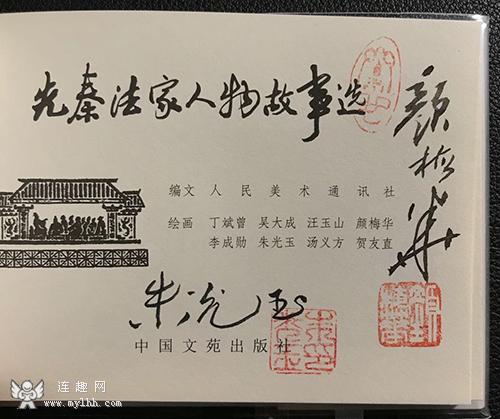 先秦法家人物故事选
编文 人民美术通讯社
绘画 丁斌曾 吴大成 汪玉山 颜梅华
李成勋 朱光玉 汤义方 贺友直
颜梅华
朱光玉
中国文苑出版社
连趣网
www.mylhh.com